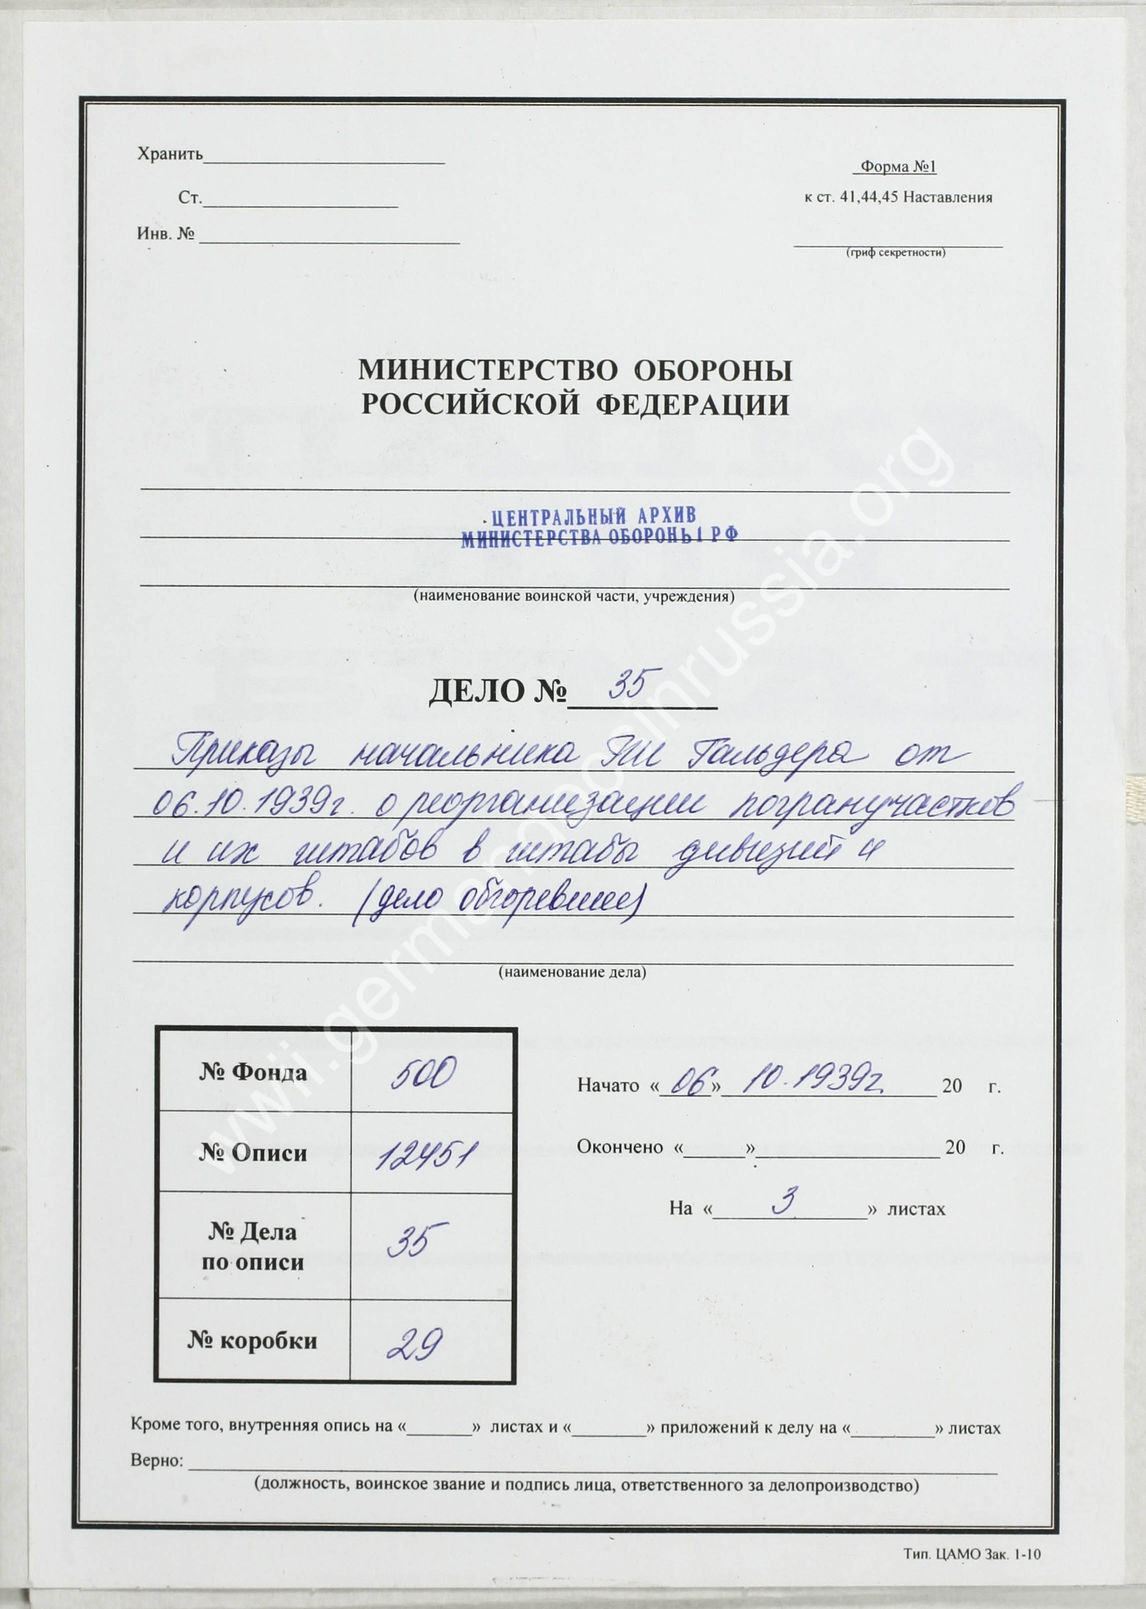 Хранить
Форма №1
Ст.
к ст. 41,44,45 Наставления
Инв. №
(гриф секретности)
МИНИСТЕРСТВО ОБОРОНЫ
РОССИЙСКОЙ ФЕДЕРАЦИИ
ЦЕНТРАЛЬНЫЙ АРХИВ
МИНИСТЕРСТВА ОБОРОНЫ РФ
(наименование воинской части, учреждения)
ДЕЛО № 35
Приказы начальника ГШ Гальдера от
06.10.1939г. о реорганизации погранучастков
и их штабов в штабы дивизий и
корпусов. (дело обгоревшее)
(наименование дела)
№ Фонда 500
№ Описи 12451
№ Дела
по описи 35
№ коробки 29
Начато «06» 10.1939г. 20 г.
Окончено « » 20 г.
На « 3 » листах
Кроме того, внутренняя опись на « » листах и « » приложений к делу на « » листах
Верно:
(должность, воинское звание и подпись лица, ответственного за делопроизводство)
Тип. ЦАМО Зак. 1-10
wwii.germandocsinrussia.org